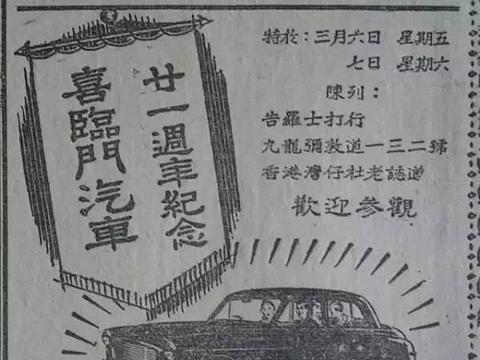 廿一週年紀念
喜臨門汽車
特於：三月六日 星期五
七日 星期六
陳列：
告羅士打行
九龍彌敦道一三二號
香港灣仔杜老誌道
歡迎參觀